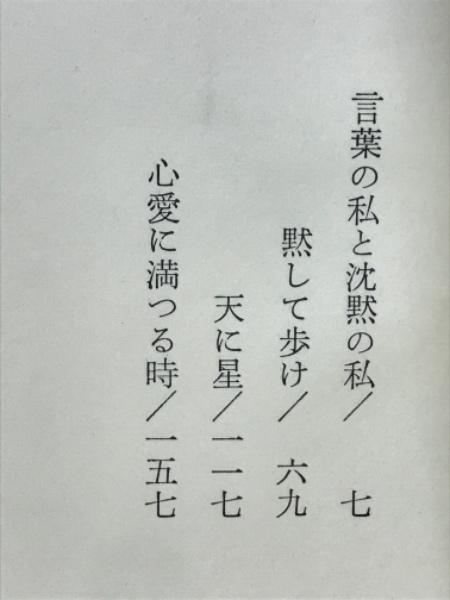 言葉の私と沈黙の私／　七
黙して歩け／　六九
天に星／一一七
心愛に満つる時／一五七